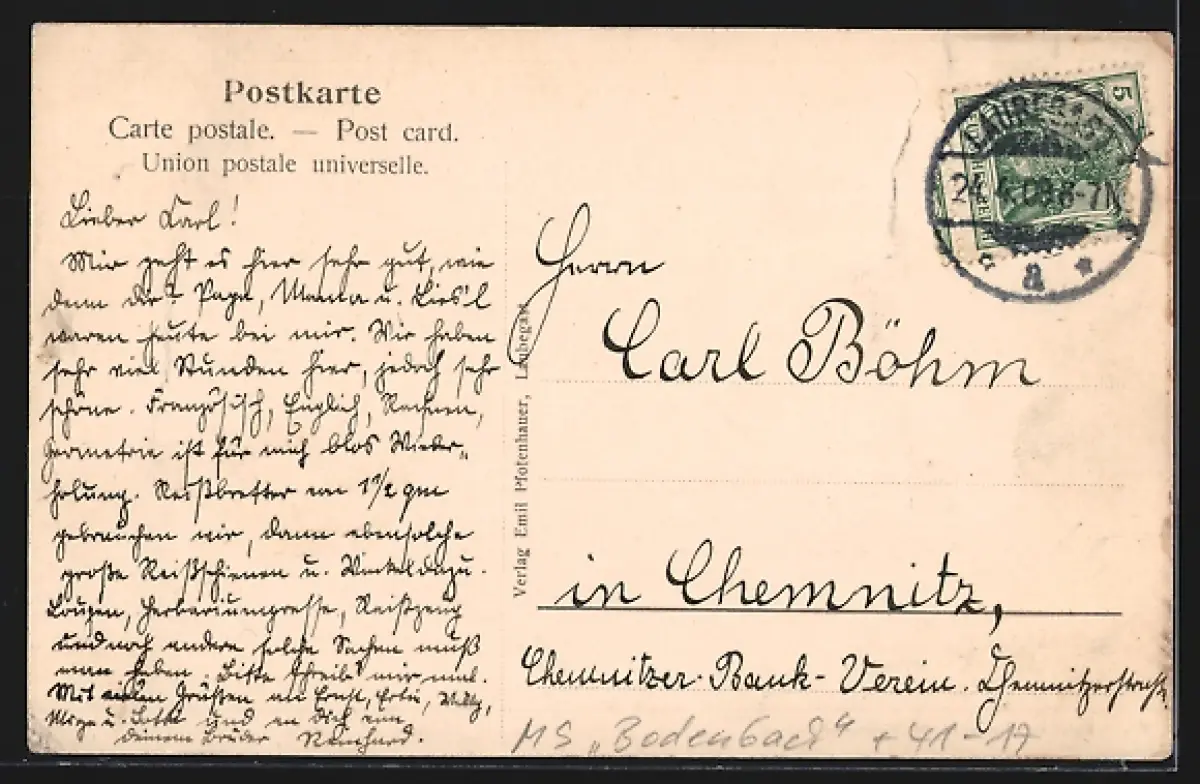 Postkarte
Carte postale. — Post card.
Union postale universelle.
Lieber Carl!
Mir geht es hier sehr gut, wie
denn dir? Papa, Mama u. Lies'l
waren heute bei mir. Wir haben
sehr viel Stunden hier, jedoch sehr
schöne. Französisch, Englisch, Rechnen,
Geometrie ist für mich blos Wieder„
holung. Reißbretter von 1½ qm
gebrauchen wir, dann ebensolche
große Reißschienen u. Winkel dazu.
Loupen, Herbariumpresse, Reißzeug
und noch andere solche Sachen muß
man haben. Bitte schreib' mir mal.
Mit vielen Grüßen an Ernst, Willy,
u. und an dich von
deinem Bruder Reinhard.
Verlag Emil Pfotenhauer, Laubegast
LAUBEGAST
24.4.09.6-7N
a
5
Herrn
Carl Böhm
in Chemnitz,
Chemnitzer-Bank-Verein. Chemnitzerstraße
MS „Bodenbach" + 41-17